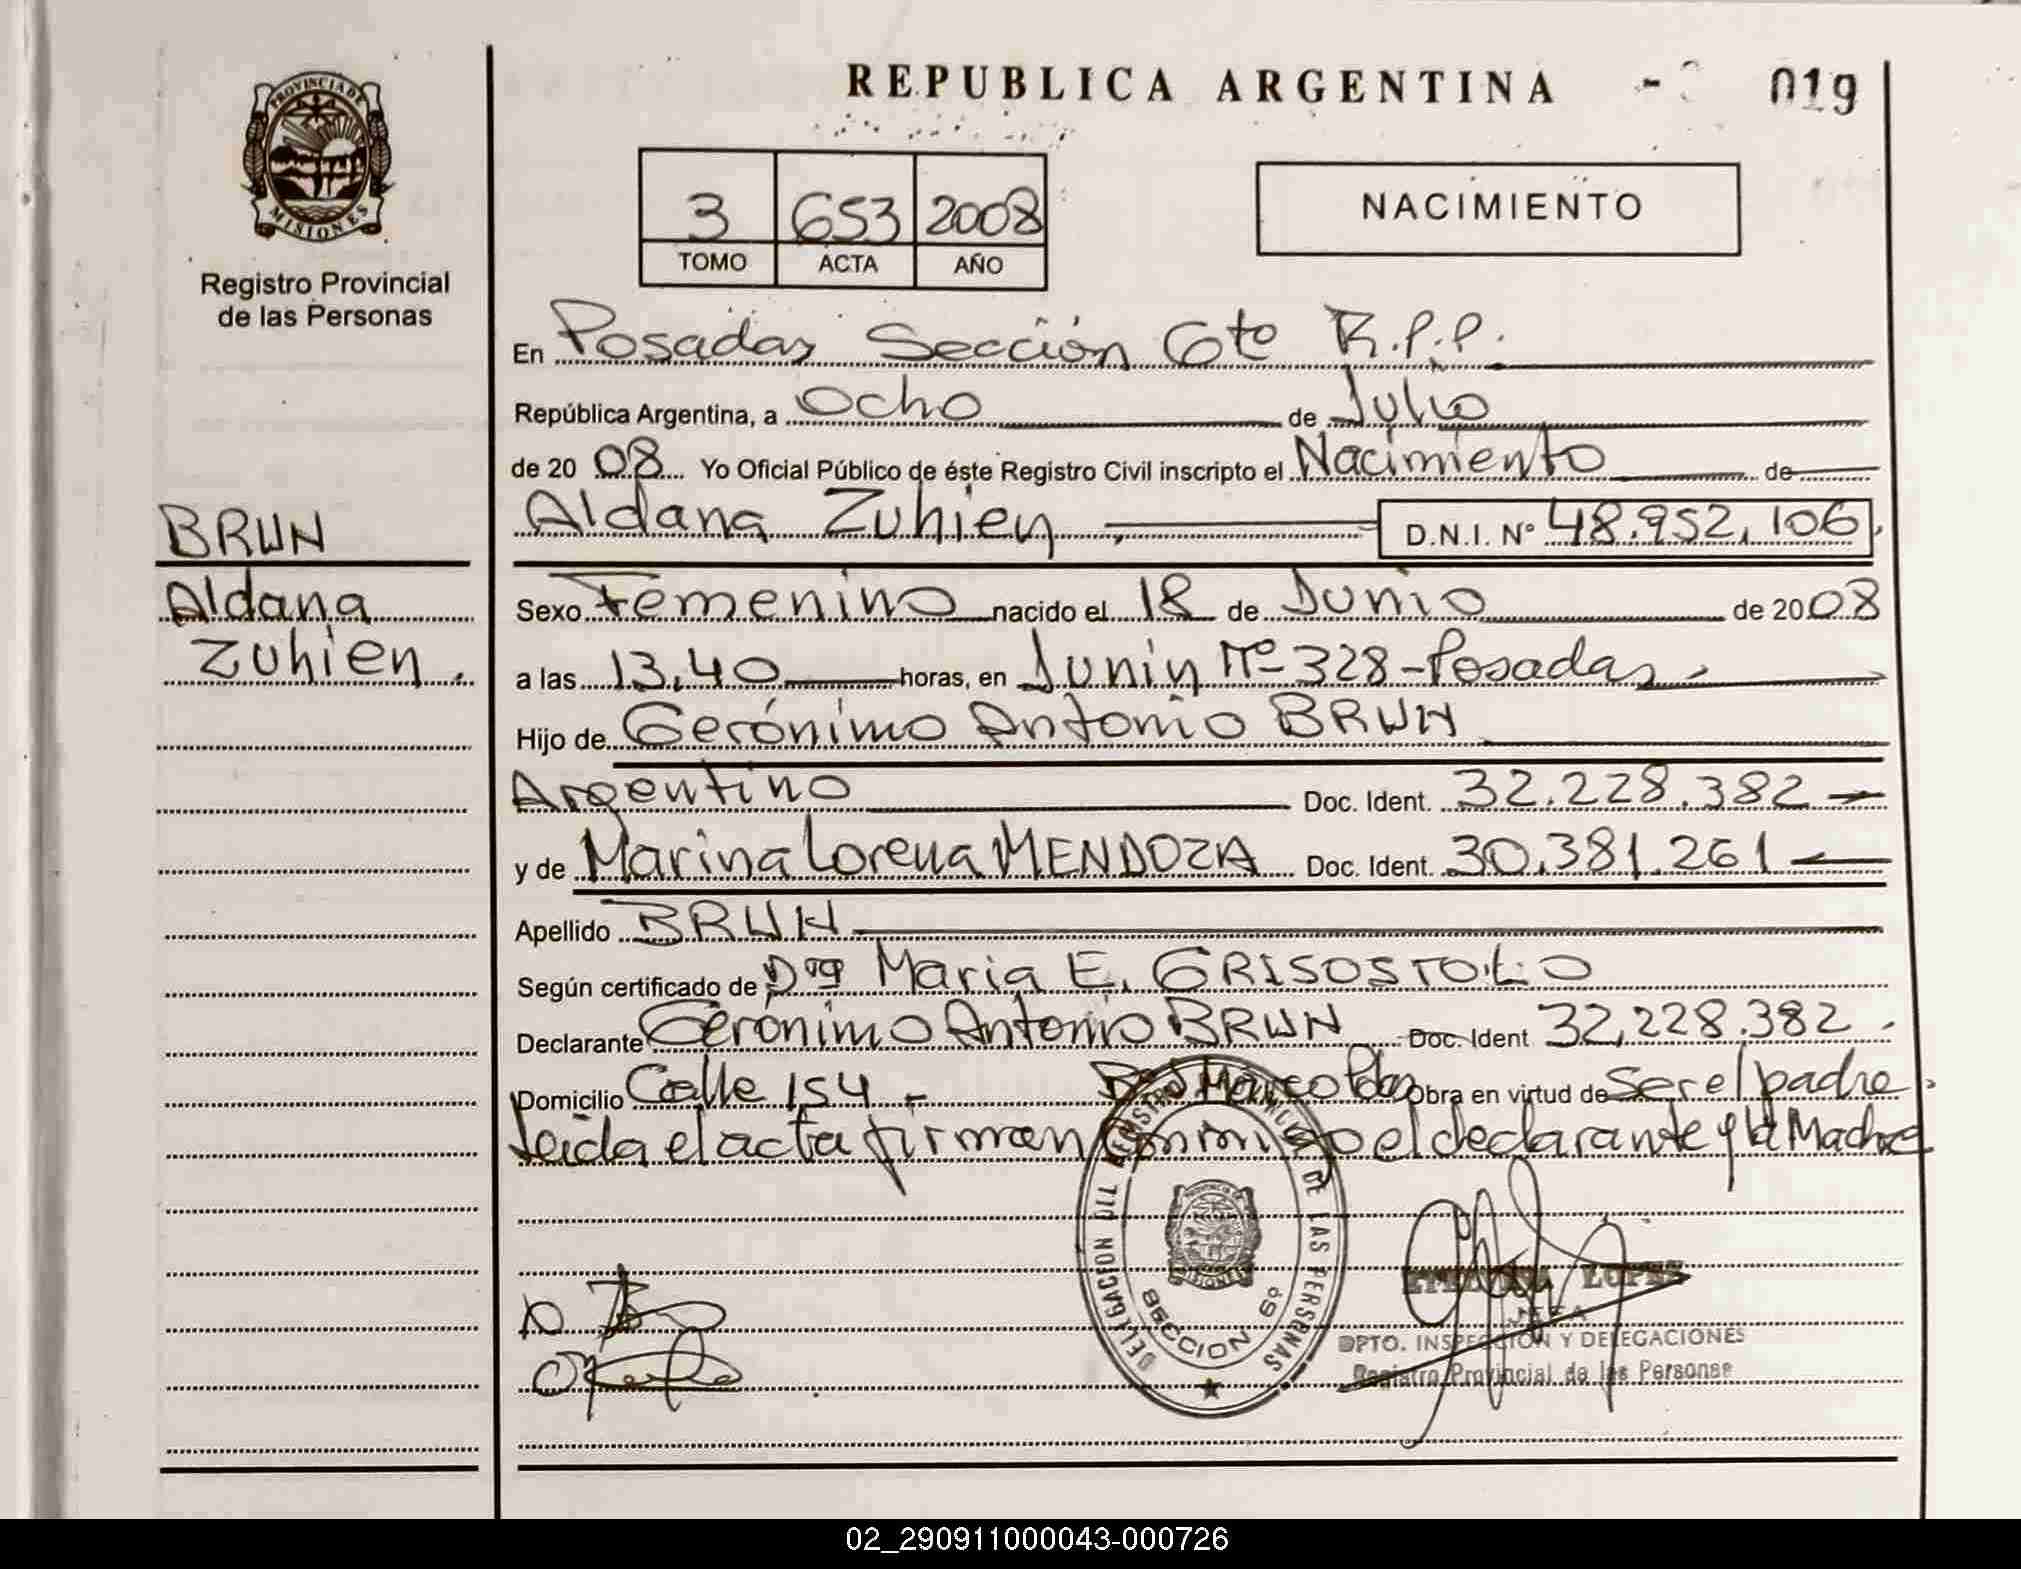 REPUBLICA ARGENTINA - 019
PROVINCIA DE
MISIONES
Registro Provincial
de las Personas
3 653 2008
TOMO ACTA AÑO
NACIMIENTO
En Posadas Sección 6to R.P.P.
República Argentina, a Ocho de Julio
de 20 08 Yo Oficial Público de éste Registro Civil inscripto el Nacimiento de
BRUN
Aldana
Zuhien.
Aldana Zuhien, D.N.I. Nº 48.952.106
Sexo Femenino nacido el 18 de Junio de 20 08
a las 13,40 horas, en Junin Nº 328-Posadas
Hijo de Gerónimo Antonio BRUN
Argentino Doc. Ident. 32.228.382
y de Marina Lorena MENDOZA Doc. Ident. 30.381.261
Apellido BRUN
Según certificado de Dra Maria E. GRISOSTOLO
Declarante Gerónimo Antonio BRUN Doc. Ident 32.228.382.
Domicilio Calle 154 - Obra en virtud de ser el padre.
Leida el acta firman conmigo el declarante y la Madre
DELEGACION REGISTRO PROVINCIAL DE LAS PERSONAS
SECCION 6º
MISIONES
LOPEZ
JEFA
DPTO. INSPECCIÓN Y DELEGACIONES
Registro Provincial de las Personas
02_290911000043-000726